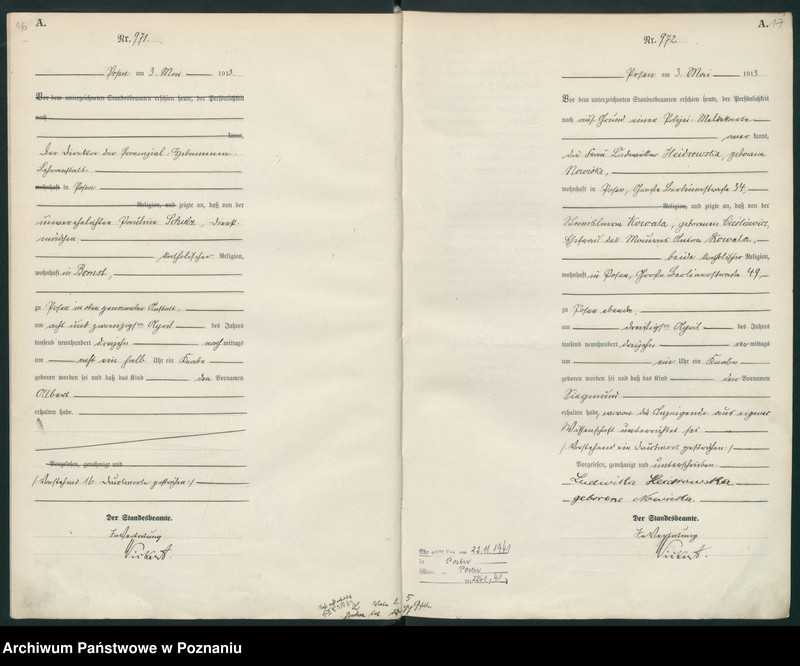 16
A.
Nr. 971.
Posen am 3. Mai 1913.
Vor dem unterzeichneten Standesbeamten erschien heute, der Persönlichkeit
nach
kannt,
Der Direktor der Provinzial-Hebammen-
Lehranstalt
wohnhaft in Posen
Religion, und zeigte an, daß von der
unverehelichten Pauline Schulz, Dienst-
mädchen,
katholischer Religion,
wohnhaft in Bomst,
zu Posen in oben genannter Anstalt,
am acht und zwanzigsten April des Jahres
tausend neunhundert dreizehn nachmittags
um acht ein halb Uhr ein Knabe
geboren worden sei und daß das Kind den Vornamen
Albert
erhalten habe.
Vorgelesen, genehmigt und
/: Vorstehend 16 Druckworte gestrichen :/
Der Standesbeamte.
In Vertretung
A. 17
Nr. 972.
Posen am 3. Mai 1913.
Vor dem unterzeichneten Standesbeamten erschien heute, der Persönlichkeit
nach auf Grund einer Polizei-Meldekarte
aner kannt,
die Frau Ludwika geborene
wohnhaft in Posen, Große Berlinerstraße 44,
Religion, und zeigte an, daß von der
Stanislawa Kowala, geborenen
Ehefrau des Maurers Anton Kowala,
beide katholischer Religion,
wohnhaft in Posen, Große Berlinerstraße 49,
zu Posen ebenda,
am dreißigsten April des Jahres
tausend neunhundert dreizehn mittags
um ein Uhr ein Knabe
geboren worden sei und daß das Kind den Vornamen
Siegmund
erhalten habe, wovon die Anzeigende aus eigener
Wissenschaft unterrichtet sei
/: Vorstehend ein Druckwort gestrichen :/
Vorgelesen, genehmigt und unterschrieben.
Ludwika
geborene
Der Standesbeamte.
In Vertretung
22.11.1941
Posen
Posen
Archiwum Państwowe w Poznaniu